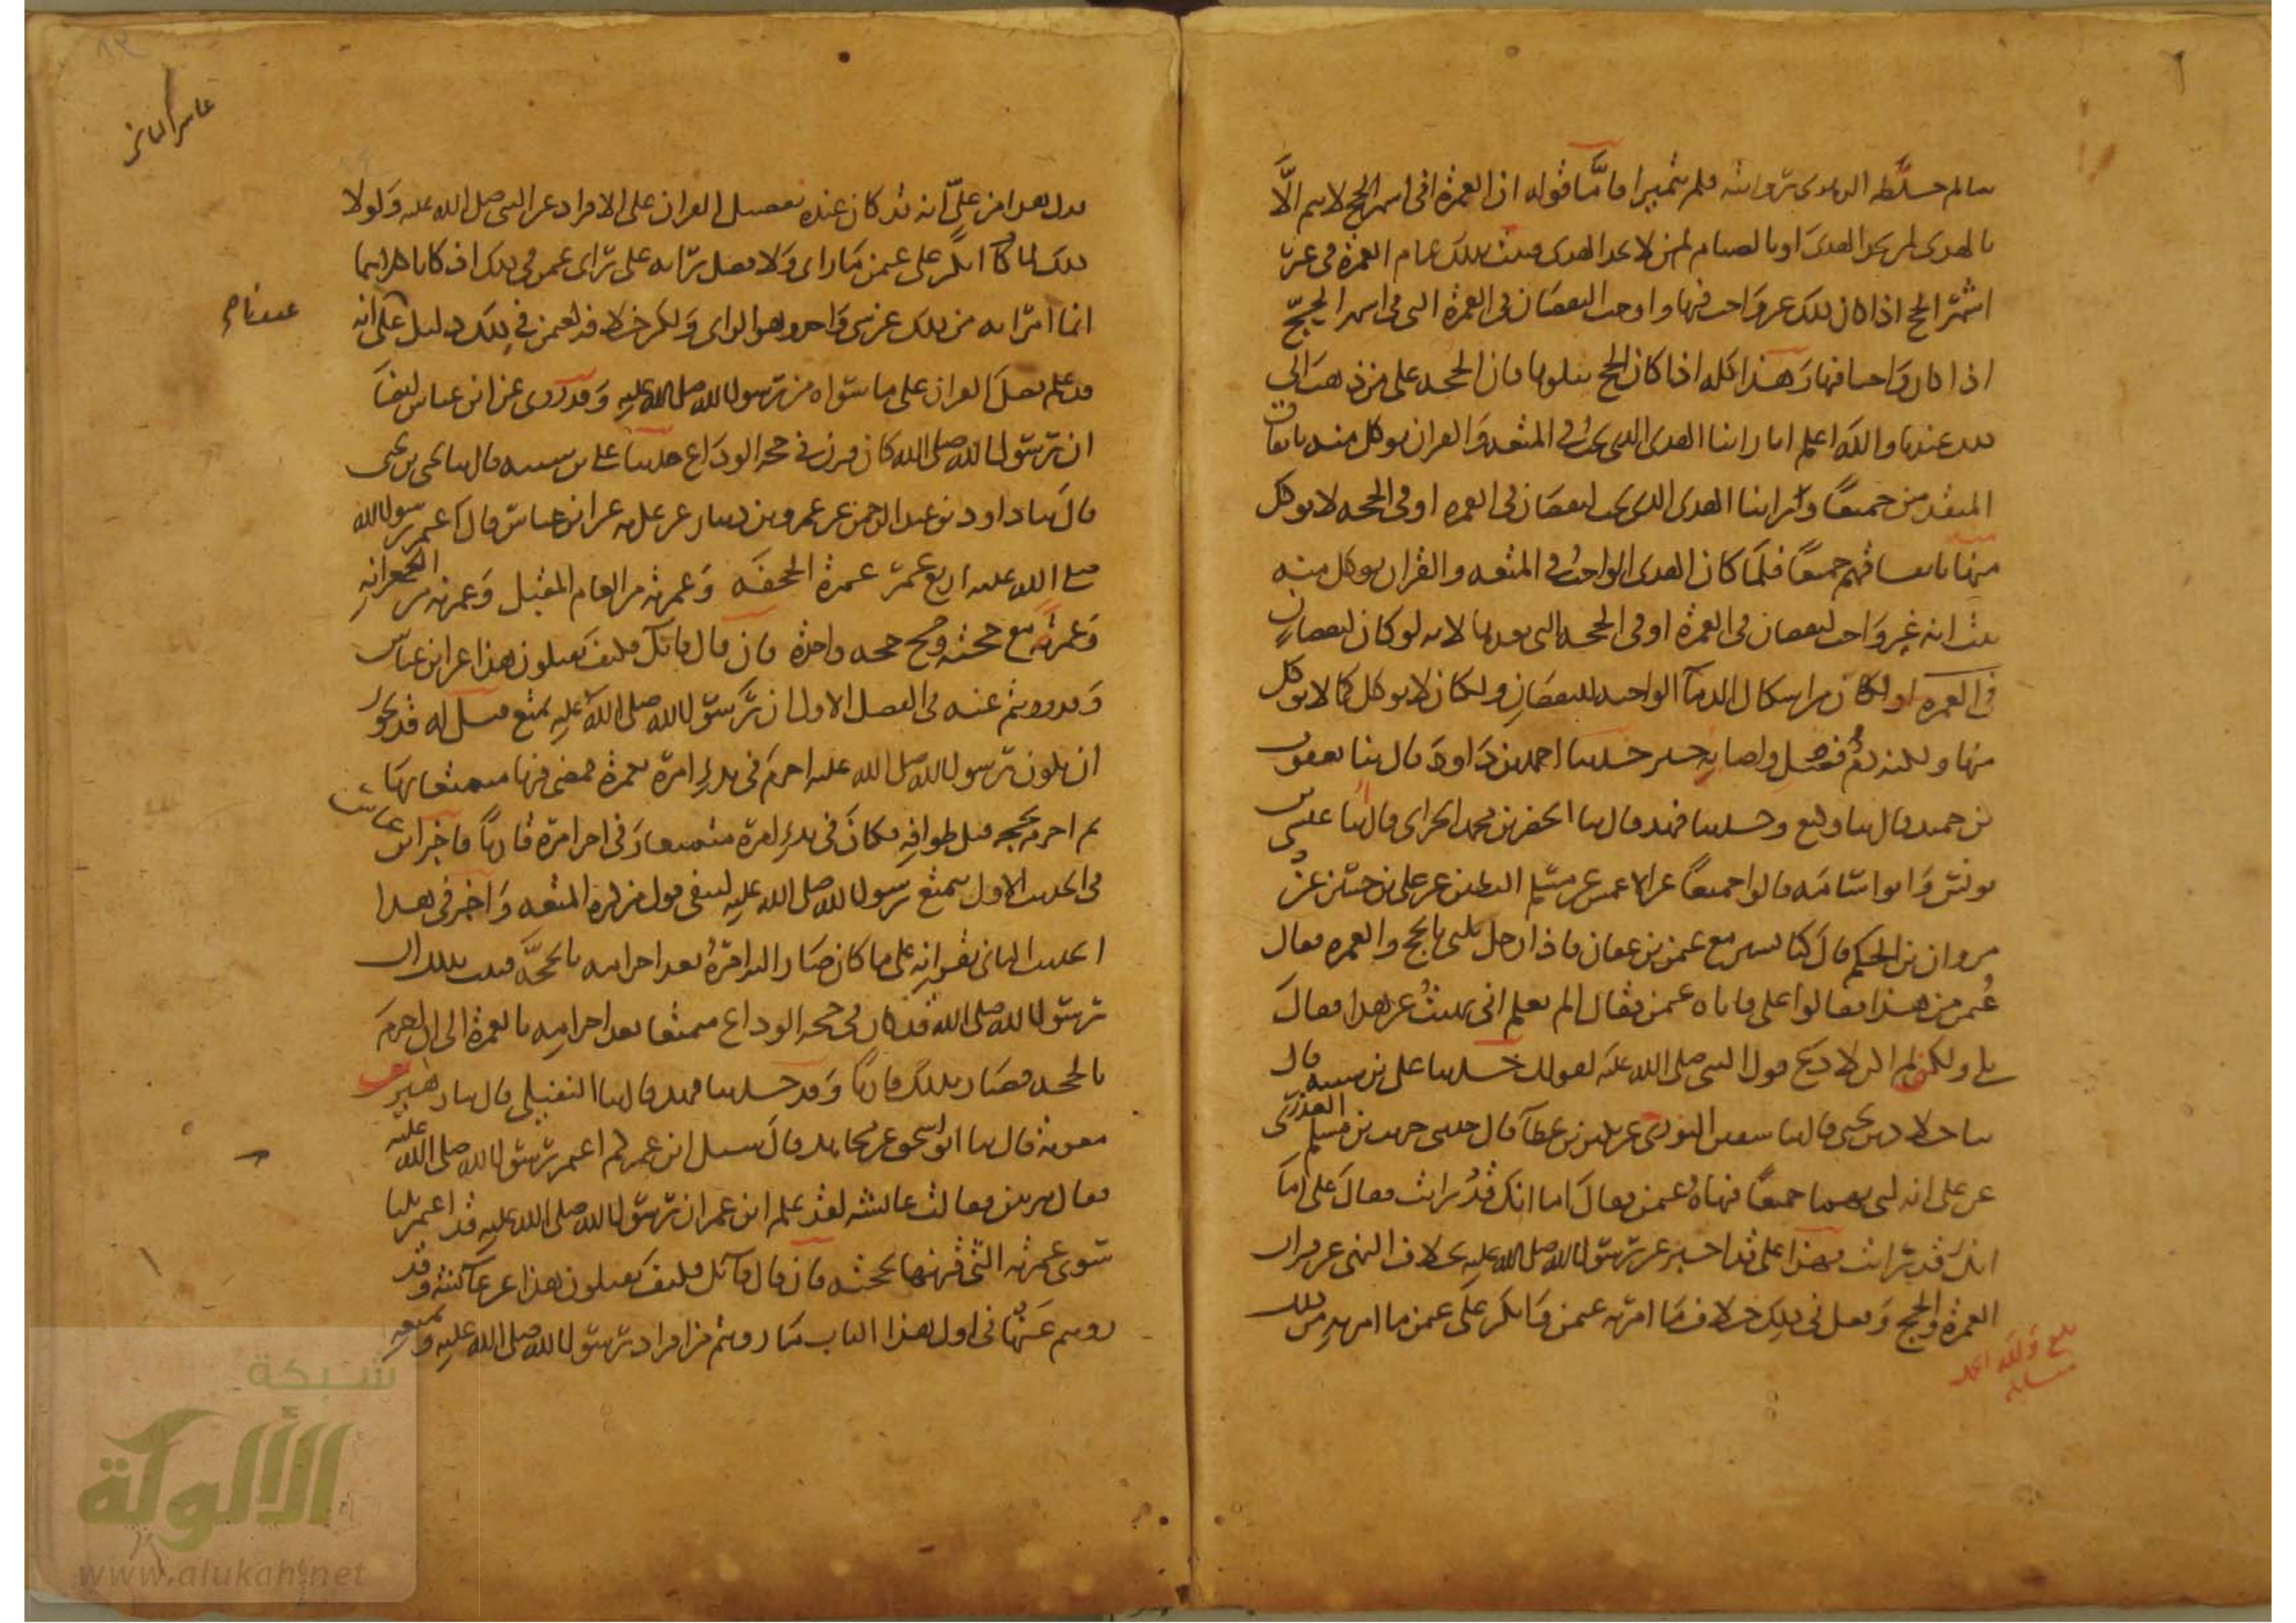 سالم خلطه الزهرى بروايته فلم يتميزا فاما قوله ان العمرة فى اشهر الحج لا تتم الا
بالهدى لمن يجد الهدى او بالصيام لمن لا يجد الهدى فثبت بذلك تمام العمرة فى غير
اشهر الحج اذا كان ذلك غير واجب فيها واوجب النقصان فى العمرة التى فى اشهر الحج
اذا كان واجبا فيها وهذا كله اذا كان الحج يتلوها فان الحجة على من ذهب الى
ذلك عندنا والله اعلم انا راينا الهدى الذى يجب فى المتعة والقران يوكل منه باتفاق
المتقدمين جميعا وراينا الهدى الذى يجب لنقصان فى العمرة او فى الحجة لا يوكل
منه باتفاقهم جميعا فلما كان الهدى الواجب فى المتعة والقران يوكل منه
ثبت انه غير واجب لنقصان فى العمرة او فى الحجة التى بعدها لانه لو كان لنقصان
فى العمرة او لكان من اشكال الدماء الواجبة للنقصان ولكان لا يوكل كما لا يوكل
منها ولكنه دم فضل واصابة خير حدثنا احمد بن داود قال ثنا يعقوب
بن حميد قال ثنا وكيع وحدثنا فهد قال ثنا الخضر بن محمد الحرانى قال ثنا عيسى بن
يونس وابو اسامة قالوا جميعا عن الاعمش عن مسلم البطين عن على بن حسين عن
مروان بن الحكم قال كنا نسير مع عثمن بن عفان فاذا رجل يلبى بالحج والعمرة فقال
عثمن من هذا فقالوا على فاتاه عثمن فقال الم تعلم انى نهيت عن هذا فقال
بلى ولكن لم اكن لادع قول النبى صلى الله عليه لقولك حدثنا على بن شيبة قال
ثنا خلاد بن يحيى قال ثنا سفين الثورى عن بكير بن عطاء قال حدثنى حريث بن سليم العذرى
عن على انه لبى بهما جميعا فنهاه عثمن فقال اما انك قد رايت فقال على اما
انك قد رايت فهذا على قد اخبر عن رسول الله صلى الله عليه بخلاف النهى عن قران
العمرة والحج وفعل فى ذلك خلاف ما امر به عثمن وانكر على عثمن ما امر به من ذلك
بلغ ولله الحمد
عاشر الثانى
فدل هذا من على انه قد كان عنده تفضيل القران على الافراد عن النبى صلى الله عليه ولولا
ذلك لما انكر على عثمن ما راى ولا فضل رايه على راى عثمن فى ذلك اذ كانا كلاهما
انما امرا به من ذلك عن شى واحد وهو الراى ولكن خلافه لعثمن فى ذلك دليل على انه
قد علم فضل القران على ما سواه من رسول الله صلى الله عليه وقد روى عن ابن عباس ايضا
ان رسول الله صلى الله كان قرن فى حجة الوداع حدثنا على بن شيبة قال ثنا يحيى بن يحيى
قال ثنا داود بن عبد الرحمن عن عمرو بن دينار عن عكرمة عن ابن عباس قال اعتمر رسول الله
صلى الله عليه اربع عمر عمرة الجحفة وعمرته من العام المقبل وعمرته من الجعرانة
وعمرته مع حجته وحج حجة واحدة فان قال قائل فكيف تقبلون هذا عن ابن عباس
وقد رويتم عنه فى الفصل الاول ان رسول الله صلى الله عليه تمتع فيل له قد يجوز
ان يكون رسول الله صلى الله عليه احرم فى بدء امره بعمرة فمضى فيها متمتعا بها
ثم احرم بحجة قبل طوافه فكان فى بدء امره متمتعا وفى اخر امره قارنا فاخبر ابن عباس
فى الحديث الاول بتمتع رسول الله صلى الله عليه لينفى قول من كره المتعة واخبر فى هذا
الحديث الثانى بقرانه على ما كان صار اليه امره بعد احرامه بالحجة فثبت بذلك ان
رسول الله صلى الله قد كان فى حجة الوداع متمتعا بعد احرامه بالعمرة الى ان احرم
بالحجة فصار بذلك قارنا وقد حدثنا فهد قال ثنا النفيلى قال ثنا زهير بن
معوية قال ثنا ابو اسحق عن مجاهد قال سئل ابن عمر كم اعتمر رسول الله صلى الله عليه
فقال مرتين فقالت عائشة لقد علم ابن عمر ان رسول الله صلى الله عليه قد اعتمر ثلثا
سوى عمرته التى قرنها بحجته فان قال قائل فكيف تقبلون هذا عن عائشة وقد
رويتم عنها فى اول هذا الباب ما رويتم من افراد رسول الله صلى الله عليه وتمتعه
شبكة
الألوكة
www.alukah.net